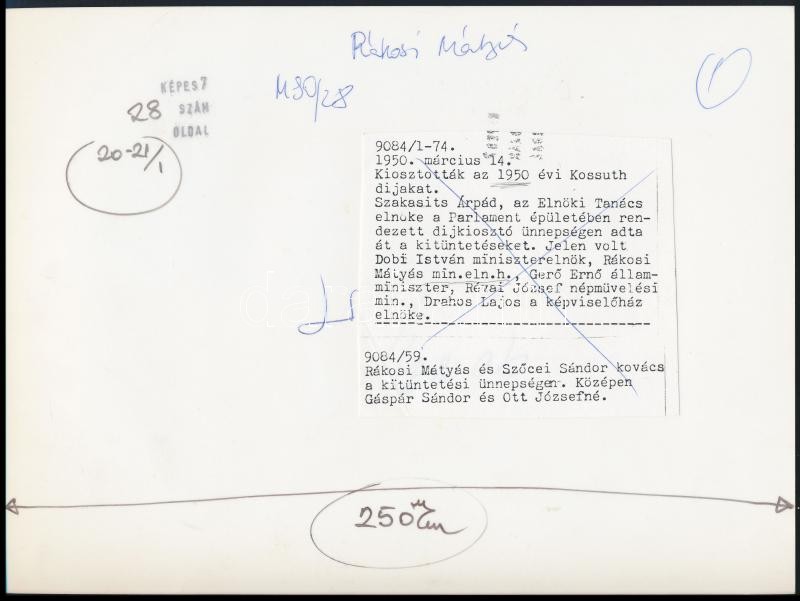 Rákosi Mátyás
M80/28
KÉPES 7
28 SZÁM
OLDAL
20-21/1
9084/1-74.
1950. március 14.
Kiosztották az 1950 évi Kossuth
dijakat.
Szakasits Árpád, az Elnöki Tanács
elnöke a Parlament épületében ren-
dezett dijkiosztó ünnepségen adta
át a kitüntetéseket. Jelen volt
Dobi István miniszterelnök, Rákosi
Mátyás min.eln.h., Gerő Ernő állam-
miniszter, Révai József népmüvelési
min., Drahos Lajos a képviselőház
elnöke.
9084/59.
Rákosi Mátyás és Szőcei Sándor kovács
a kitüntetési ünnepségen. Középen
Gáspár Sándor és Ott Józsefné.
250